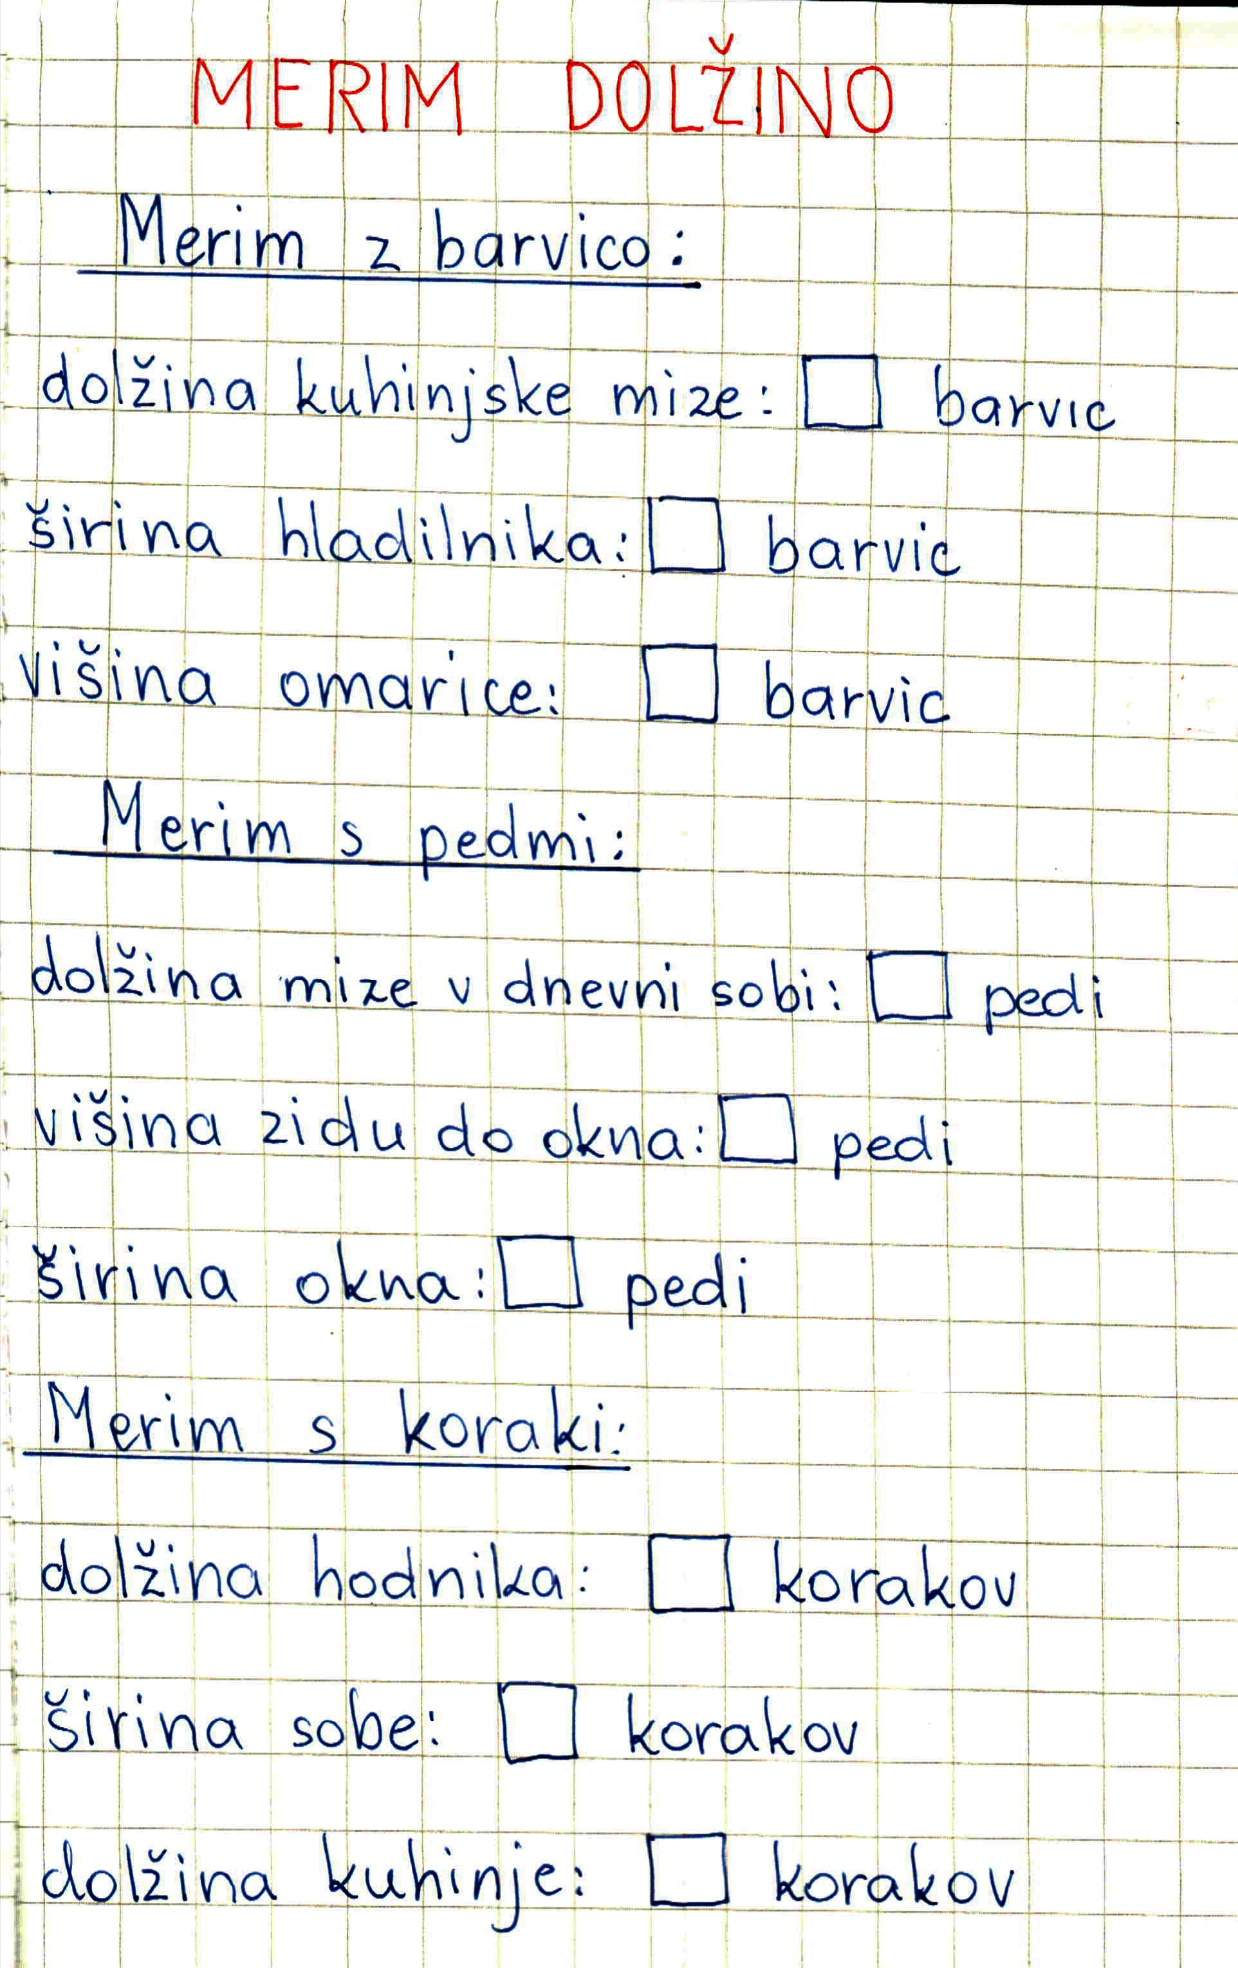 MERIM DOLŽINO
Merim z barvico:
dolžina kuhinjske mize: □ barvic
širina hladilnika: □ barvic
višina omarice: □ barvic
Merim s pedmi:
dolžina mize v dnevni sobi: □ pedi
višina zidu do okna: □ pedi
širina okna: □ pedi
Merim s koraki:
dolžina hodnika: □ korakov
širina sobe: □ korakov
dolžina kuhinje: □ korakov